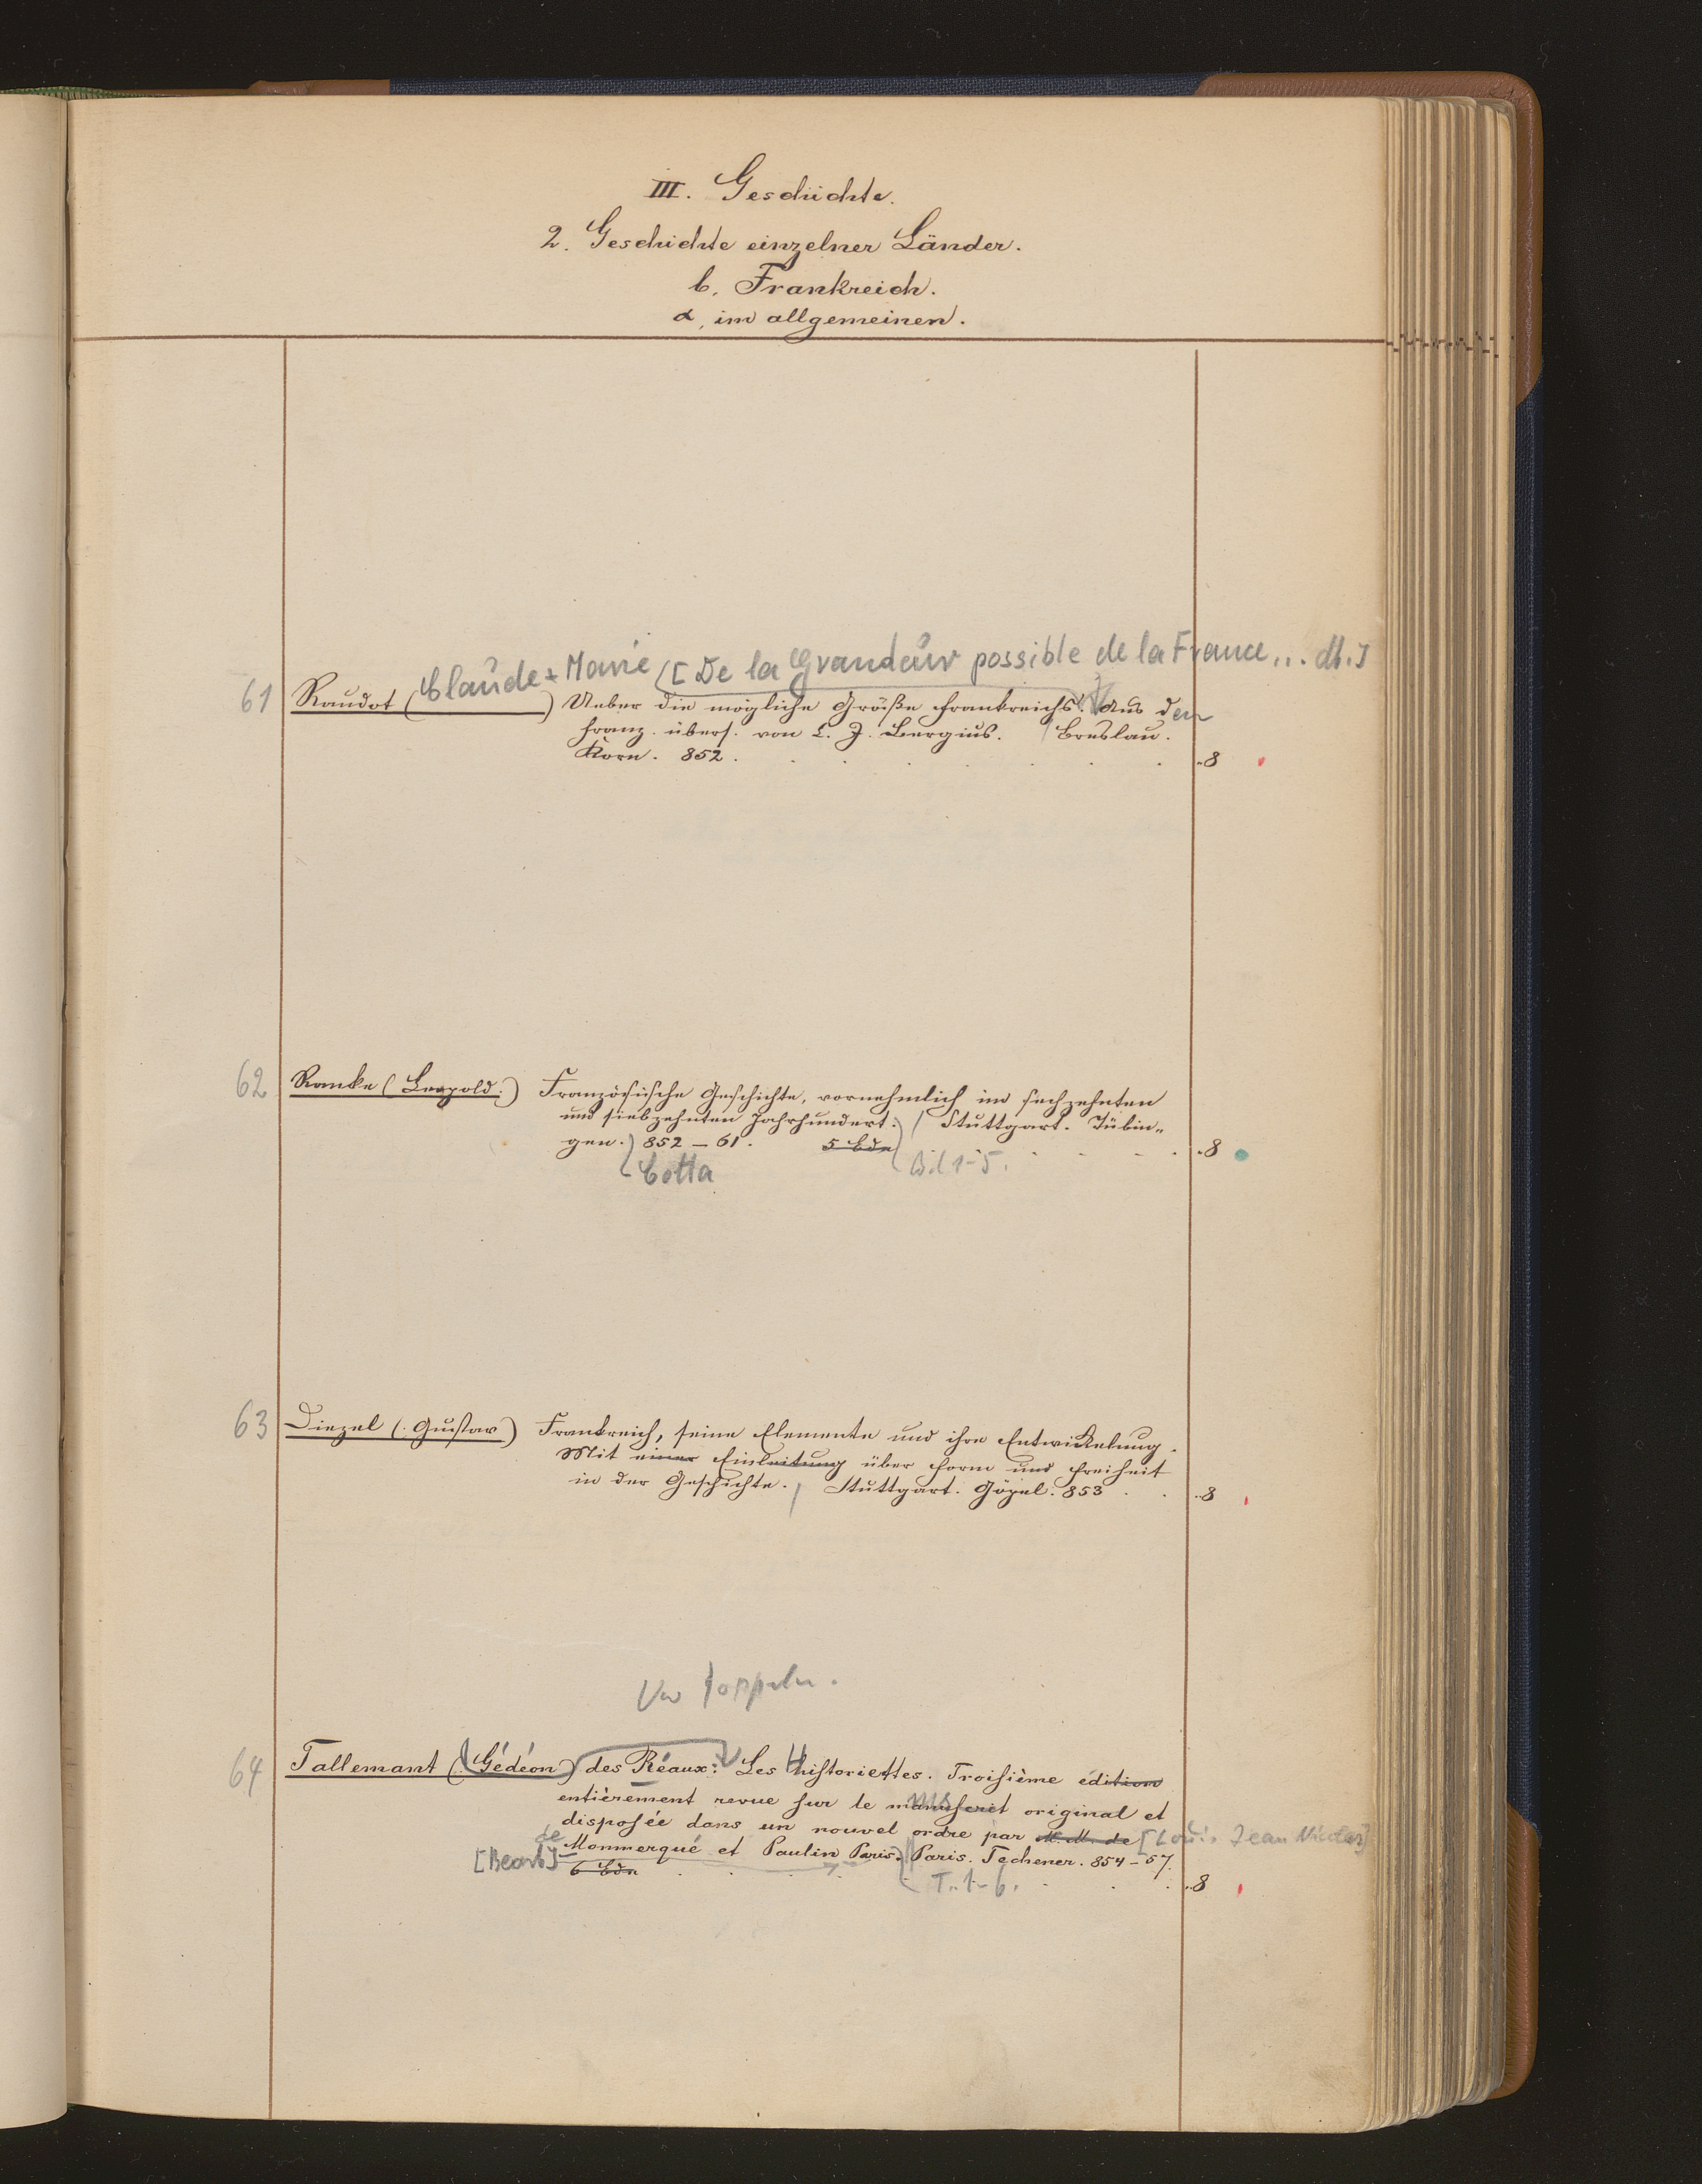 III. Geschichte.
2. Geschichte einzelner Länder.
b. Frankreich.
α, im allgemeinen.
Claude-Marie [De la Grandeur possible de la France... dt.]
61 Raudot ( ) Ueber die mögliche Größe Frankreichs. Aus den
Franz. übers. von C. J. Bergius. / Breslau.
Korn. 852. 8
62 Ranke (Leopold:) Französische Geschichte, vornehmlich im sechzehnten
und siebzehnten Jahrhundert. / Stuttgart. Tübin-
gen. 852–61. 5 Bde 8
Cotta Bd 1-5.
63 Diezel (Gustav) Frankreich, seine Elemente und ihre Entwickelung.
Mit einer Einleitung über Form und Freiheit
in der Geschichte. / Stuttgart. Göpel. 853 8
64 Tallemant (Gédéon) des Réaux: Les Historiettes. Troisième édition
entièrement revue sur le manuscrit original et
disposée dans un nouvel ordre par M. M. de [Louis Jean Nicolas]
de Monmerqué et Paulin Paris. Paris. Techener. 854–57.
6 Bde T. 1-6. 8